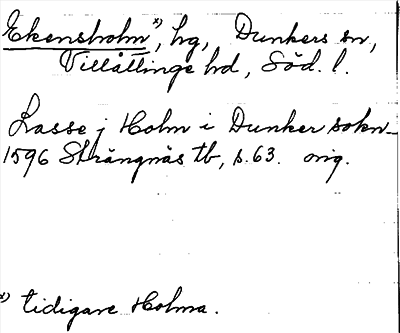 Ekensholm x), hg, Dunkers sn,
Villåttinge hd, Söd. l.
Lasse j Holm i Dunker sokn
1596 Strängnäs tb, s. 63. orig.
x) tidigare Holma.